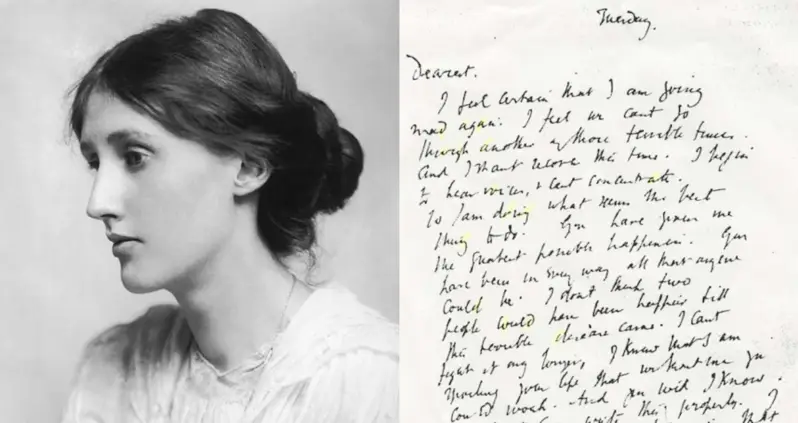 Tuesday.
Dearest.
I feel certain that I am going
mad again. I feel we cant go
through another of those terrible times.
And I shant recover this time. I begin
to hear voices, & cant concentrate.
So I am doing what seems the best
thing to do. You have given me
the greatest possible happiness. You
have been in every way all that anyone
could be. I dont think two
people could have been happier till
this terrible disease came. I cant
fight it any longer, I know that I am
spoiling your life, that without me you
could work. And you will I know.
write this properly. I
that